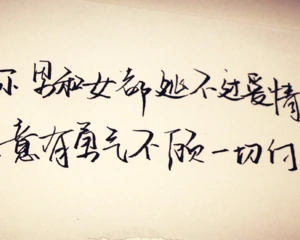 不 男和女都逃不过爱情
意有勇气不顾一切付